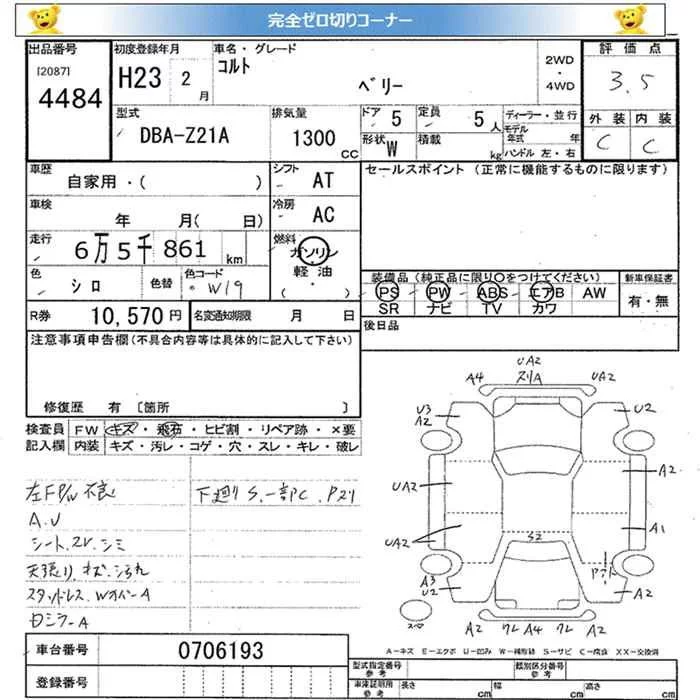 完全ゼロ切りコーナー
出品番号
[2087]
4484
初度登録年月
H23 2月
車名・グレード
コルト
ベリー
2WD
・
4WD
評価点
3.5
外装 内装
C C
型式
DBA-Z21A
排気量
1300 CC
ドア 5
定員 5人
形状 W
積載 kg
ディーラー・並行
モデル年式 年
ハンドル 左・右
車歴
自家用・( )
シフト
AT
車検
年 月( 日)
冷房
AC
走行
6万5千861 km
燃料
ガソリン
軽油
( ・ )
色
シロ
色替
色コード
W19
R券 10,570円
名変通知期限 月 日
セールスポイント (正常に機能するものに限ります)
装備品 (純正品に限り○をつけてください)
PS PW ABS エアB AW
SR ナビ TV カワ
新車保証書
有・無
後日品
注意事項申告欄(不具合内容等は具体的に記入して下さい)
修復歴 有 [箇所 ]
検査員記入欄
FW キズ・飛石・ヒビ割・リペア跡・×要
内装 キズ・汚レ・コゲ・穴・スレ・キレ・破レ
左F P/W 不良
A.U
シート.スレ.シミ
天張り.キズ.汚れ
スタッドレス.WオバーA
ロミラーA
下廻りS.一部C.Pスリ
UA2
A4 スリA UA2
U3
A2
U2
UA2
A2
UA2
A1
S2
アト
A3
U2
A2
スペア
A2 ワレ A4 ワレ A2
A-キズ E-エクボ U-凹み W-補修跡 S-サビ C-腐食 XX-交換済
車台番号 0706193
登録番号
型式指定番号 参考
類別区分番号 参考
車庫証明用 参考
長さ cm
幅 cm
高さ cm